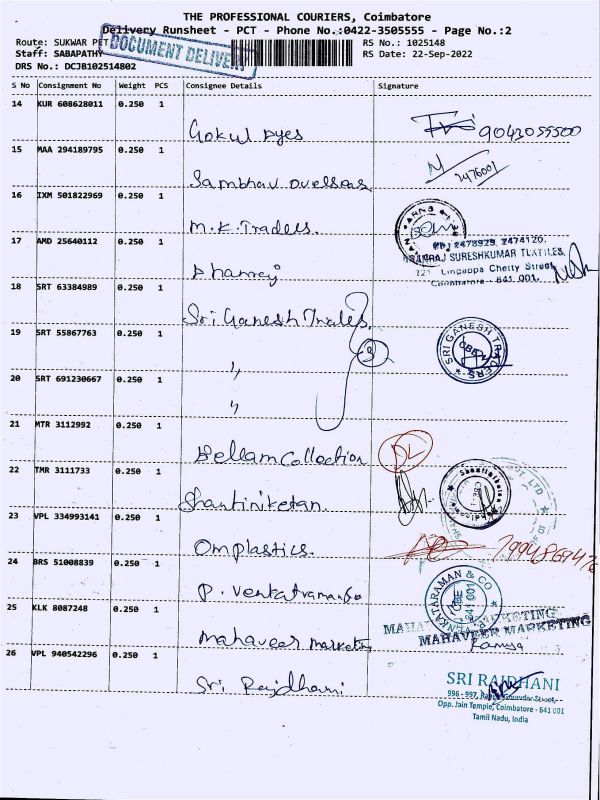 THE PROFESSIONAL COURIERS, Coimbatore
Delivery Runsheet - PCT - Phone No.:0422-3505555 - Page No.:2
Route: SUKWAR PET
DOCUMENT DELIVERY
RS No.: 1025148
Staff: SABAPATHY
RS Date: 22-Sep-2022
DRS No.: DCJB102514802
S No Consignment No Weight PCS Consignee Details Signature
14 KUR 608628011 0.250 1
Gokul dyes 9043055500
15 MAA 294189795 0.250 1
Sambhav overseas 2476001
16 IXM 501822969 0.250 1
M.K. Traders.
17 AMD 25640112 0.250 1
Ph: 2476929, 2474120.
SURESHKUMAR TEXTILES,
221 Lingappa Chetty Street,
Coimbatore - 641 001.
Dhanraj
18 SRT 63384989 0.250 1
Sri Ganesh Trades.
19 SRT 55867763 0.250 1
SRI GANESH TRADERS
CBE
" 3
20 SRT 691230667 0.250 1
"
21 MTR 3112992 0.250 1
Bellam Collection
22 TMR 3111733 0.250 1
Shantiniketan
Shantiniketan.
23 VPL 334993141 0.250 1
Om plastics.
24 BRS 51008839 0.250 1
P. Venkatraman &
VENKATARAMAN & CO
CBE
641 001
25 KLK 8087248 0.250 1
MAHAVEER MARKETING
MAHAVEER MARKETING
Mahaveer marketing
26 VPL 940542296 0.250 1
Sri Rajdhani
SRI RAJDHANI
996 - 997,
Opp. Jain Temple, Coimbatore - 641 001
Tamil Nadu, India